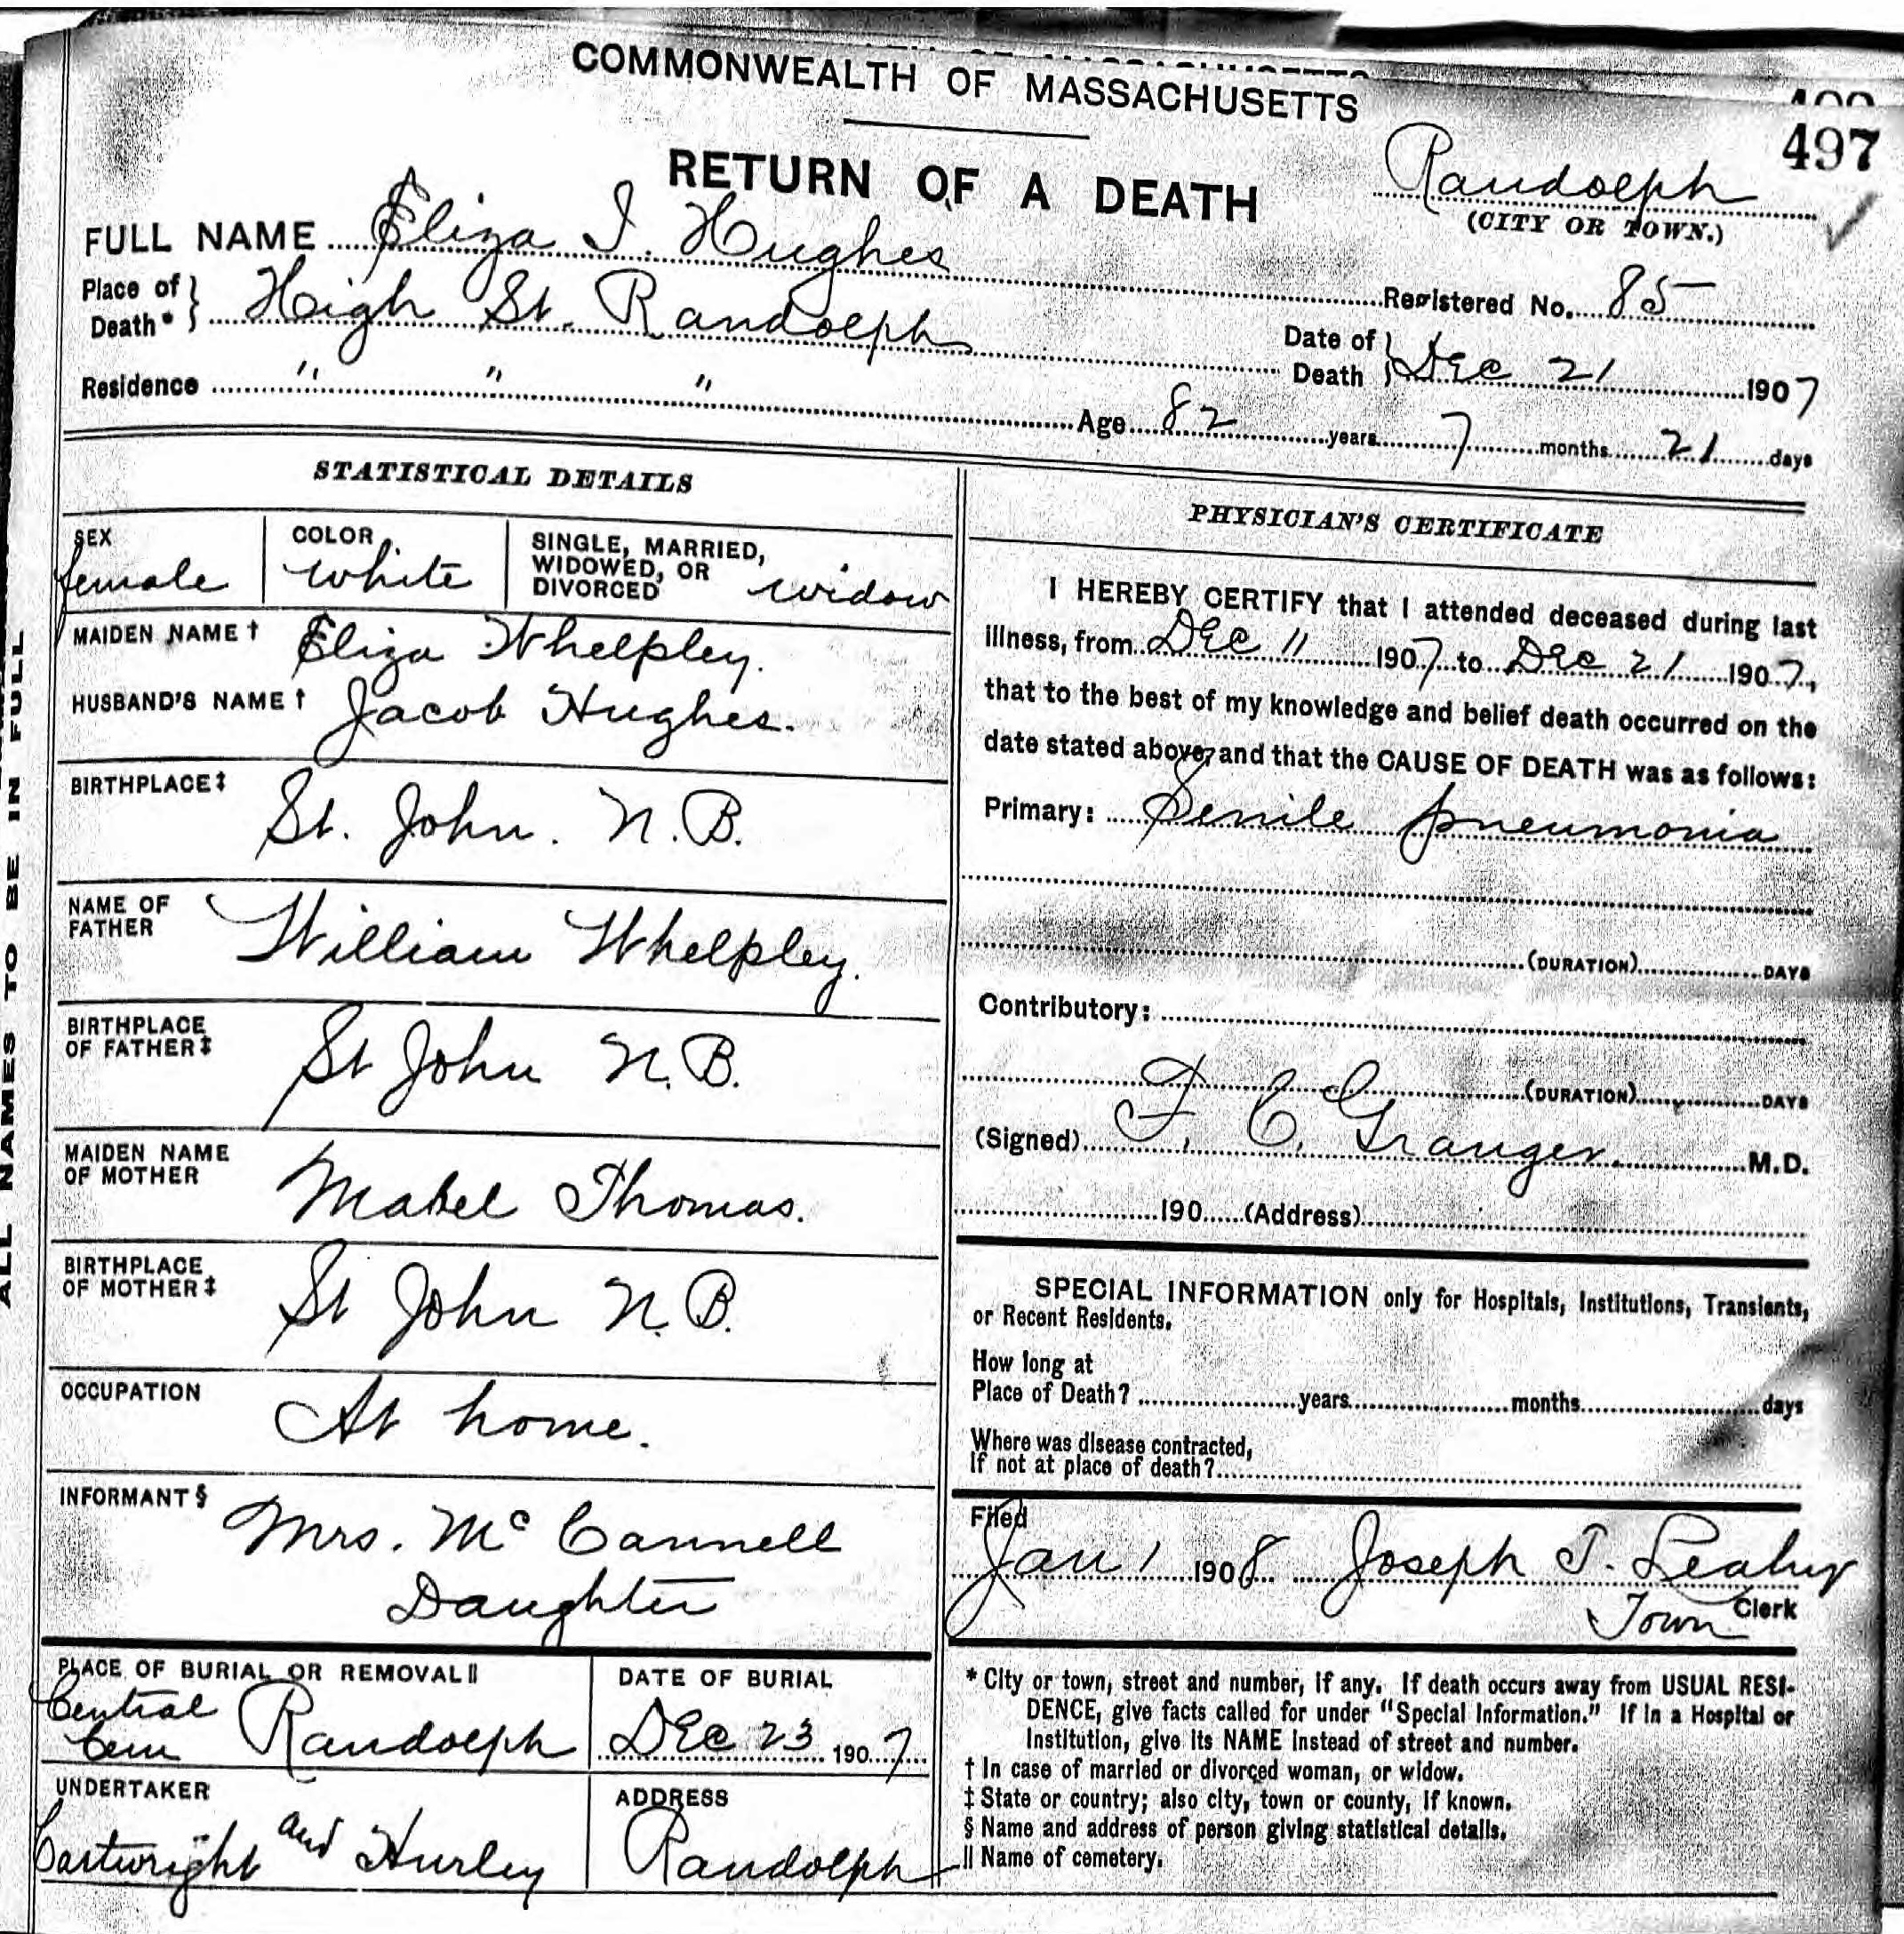 COMMONWEALTH OF MASSACHUSETTS
497
RETURN OF A DEATH
Randolph
(CITY OR TOWN.)
FULL NAME Eliza J. Hughes
Registered No. 85
Place of Death* } High St. Randolph
Date of Death } Dec 21 1907
Residence " " "
Age 82 years 7 months 21 days
ALL NAMES TO BE IN FULL
STATISTICAL DETAILS
SEX female
COLOR white
SINGLE, MARRIED, WIDOWED, OR DIVORCED widow
MAIDEN NAME † Eliza Whelpley.
HUSBAND'S NAME † Jacob Hughes.
BIRTHPLACE ‡ St. John. N.B.
NAME OF FATHER William Whelpley.
BIRTHPLACE OF FATHER ‡ St John N.B.
MAIDEN NAME OF MOTHER Mabel Thomas.
BIRTHPLACE OF MOTHER ‡ St John N.B.
OCCUPATION At home.
INFORMANT § Mrs. Mc Cannell
Daughter
PLACE OF BURIAL OR REMOVAL ||
Central Cem Randolph
DATE OF BURIAL
Dec 23 1907
UNDERTAKER
Cartwright and Hurley
ADDRESS
Randolph
PHYSICIAN'S CERTIFICATE
I HEREBY CERTIFY that I attended deceased during last
illness, from Dec 11 1907 to Dec 21 1907,
that to the best of my knowledge and belief death occurred on the
date stated above, and that the CAUSE OF DEATH was as follows:
Primary: Senile pneumonia
(DURATION) DAYS
Contributory:
(DURATION) DAYS
(Signed) F. C. Granger. M.D.
190 (Address)
SPECIAL INFORMATION only for Hospitals, Institutions, Transients,
or Recent Residents.
How long at
Place of Death? years months days
Where was disease contracted,
If not at place of death?
Filed
Jan 1 1908 Joseph T. Leahy
Town Clerk
* City or town, street and number, if any. If death occurs away from USUAL RESI-
DENCE, give facts called for under "Special Information." If in a Hospital or
Institution, give its NAME instead of street and number.
† In case of married or divorced woman, or widow.
‡ State or country; also city, town or county, if known.
§ Name and address of person giving statistical details.
|| Name of cemetery.